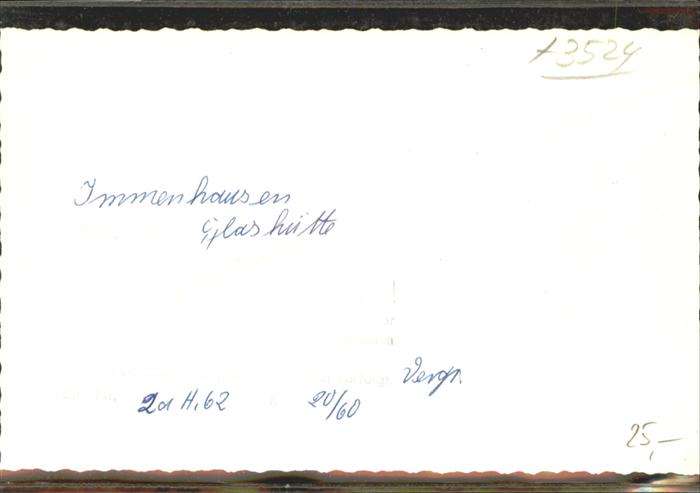 +3524
Immenhausen
Glashütte
Vergr.
2a H.62 20/60
25,-